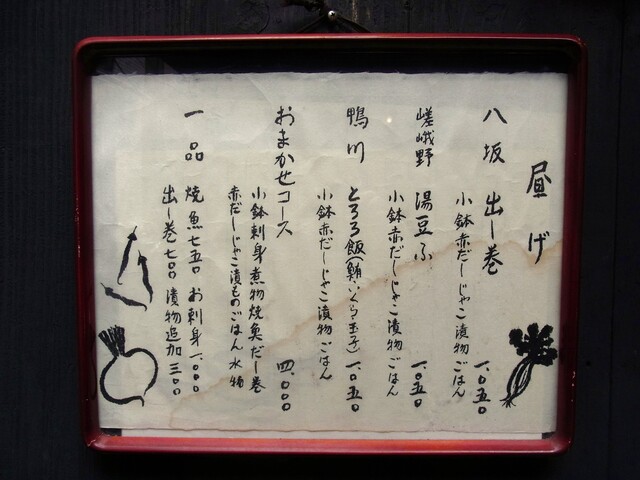 昼げ
八坂 出し巻 一、〇五〇
小鉢赤だしじゃこ漬物ごはん
嵯峨野 湯豆ふ 一、〇五〇
小鉢赤だしじゃこ漬物ごはん
鴨川 とろろ飯(鮪、いくら、玉子) 一、〇五〇
小鉢赤だしじゃこ漬物ごはん
おまかせコース 四、〇〇〇
小鉢刺身煮物焼魚だし巻
赤だしじゃこ漬ものごはん水物
一品 焼魚七五〇 お刺身一、〇〇〇
出し巻七〇〇 漬物追加三〇〇